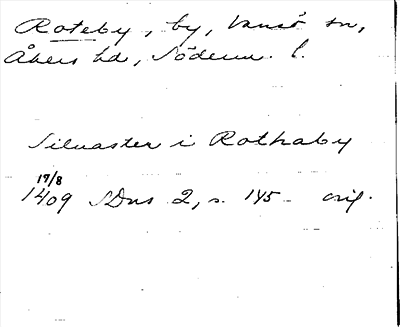 Roteby, by, Vansö sn,
Åkers hd, Söderm. l.
Siluaster i Rothaby
17/8
1409 SDns 2, s. 145 orig.